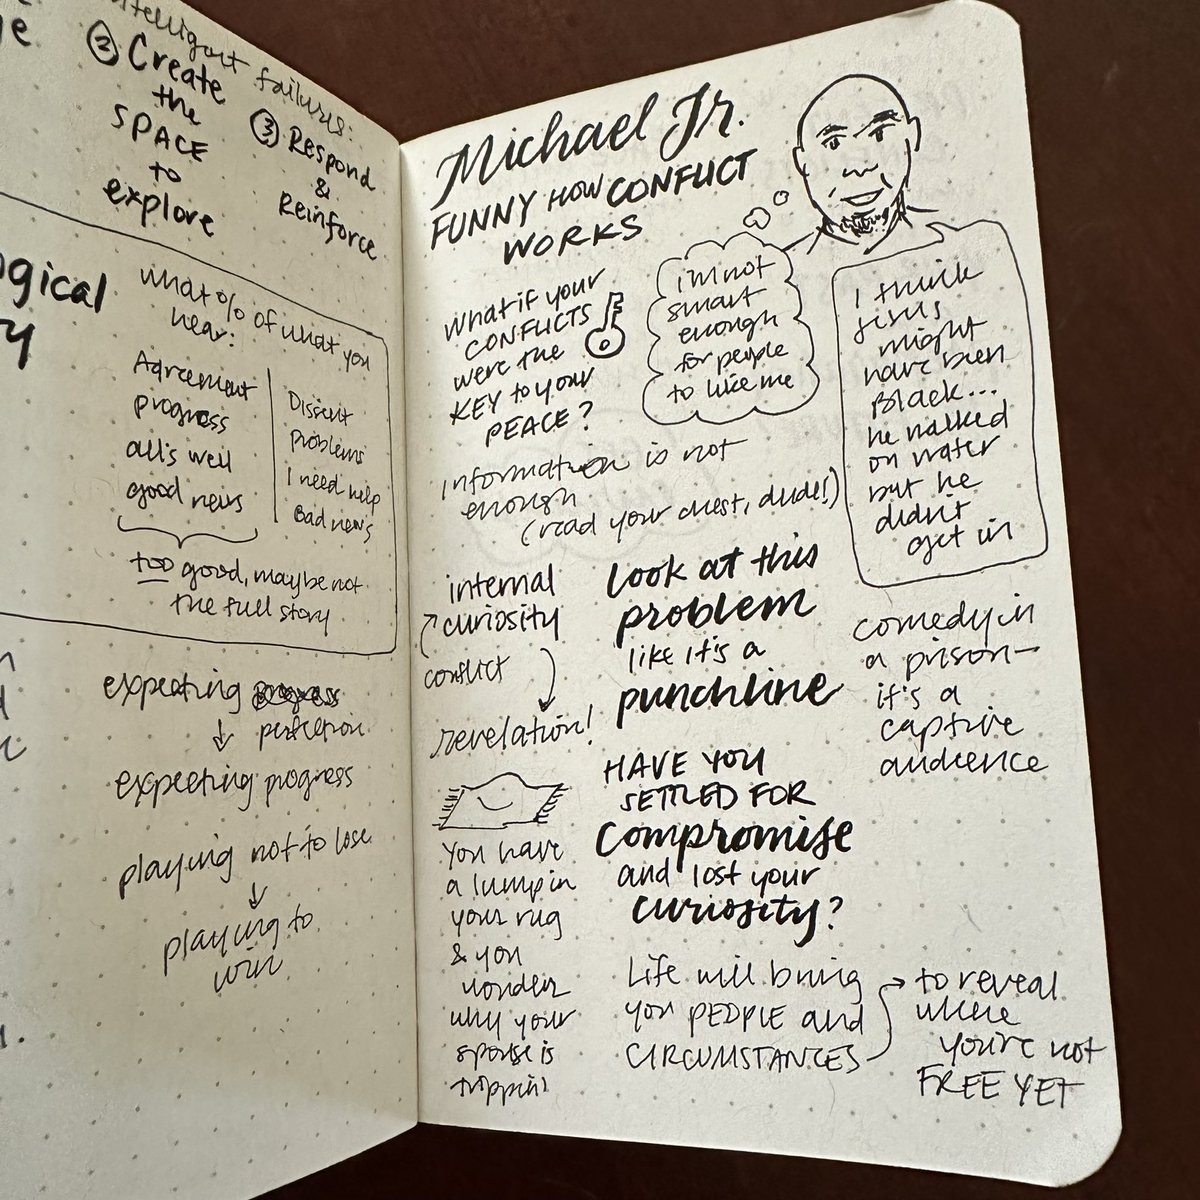 ge
intelligent failures:
② Create
the
SPACE
to
explore
③ Respond
&
Reinforce
ogical
y
what % of what you
hear:
Agreement
progress
all's well
good news
Dissent
problems
I need help
Bad news
too good, maybe not
the full story
expecting progress
perfection
↓
expecting progress
playing not to lose
↓
playing to
win
Michael Jr.
FUNNY HOW CONFLICT
WORKS
What if your
CONFLICTS
were the
KEY to your
PEACE?
i'm not
smart
enough
for people
to like me
I think
Jesus
might
have been
Black...
he walked
on water
but he
didn't
get in
information is not
enough
(read your chest, dude!)
internal
curiosity
conflict
revelation!
Look at this
problem
like it's a
punchline
comedy in
a prison—
it's a
captive
audience
HAVE YOU
SETTLED FOR
compromise
and lost your
curiosity?
You have
a lump in
your rug
& you
wonder
why your
spouse is
trippin'
Life will bring
you PEOPLE and
CIRCUMSTANCES
to reveal
where
you're not
FREE YET